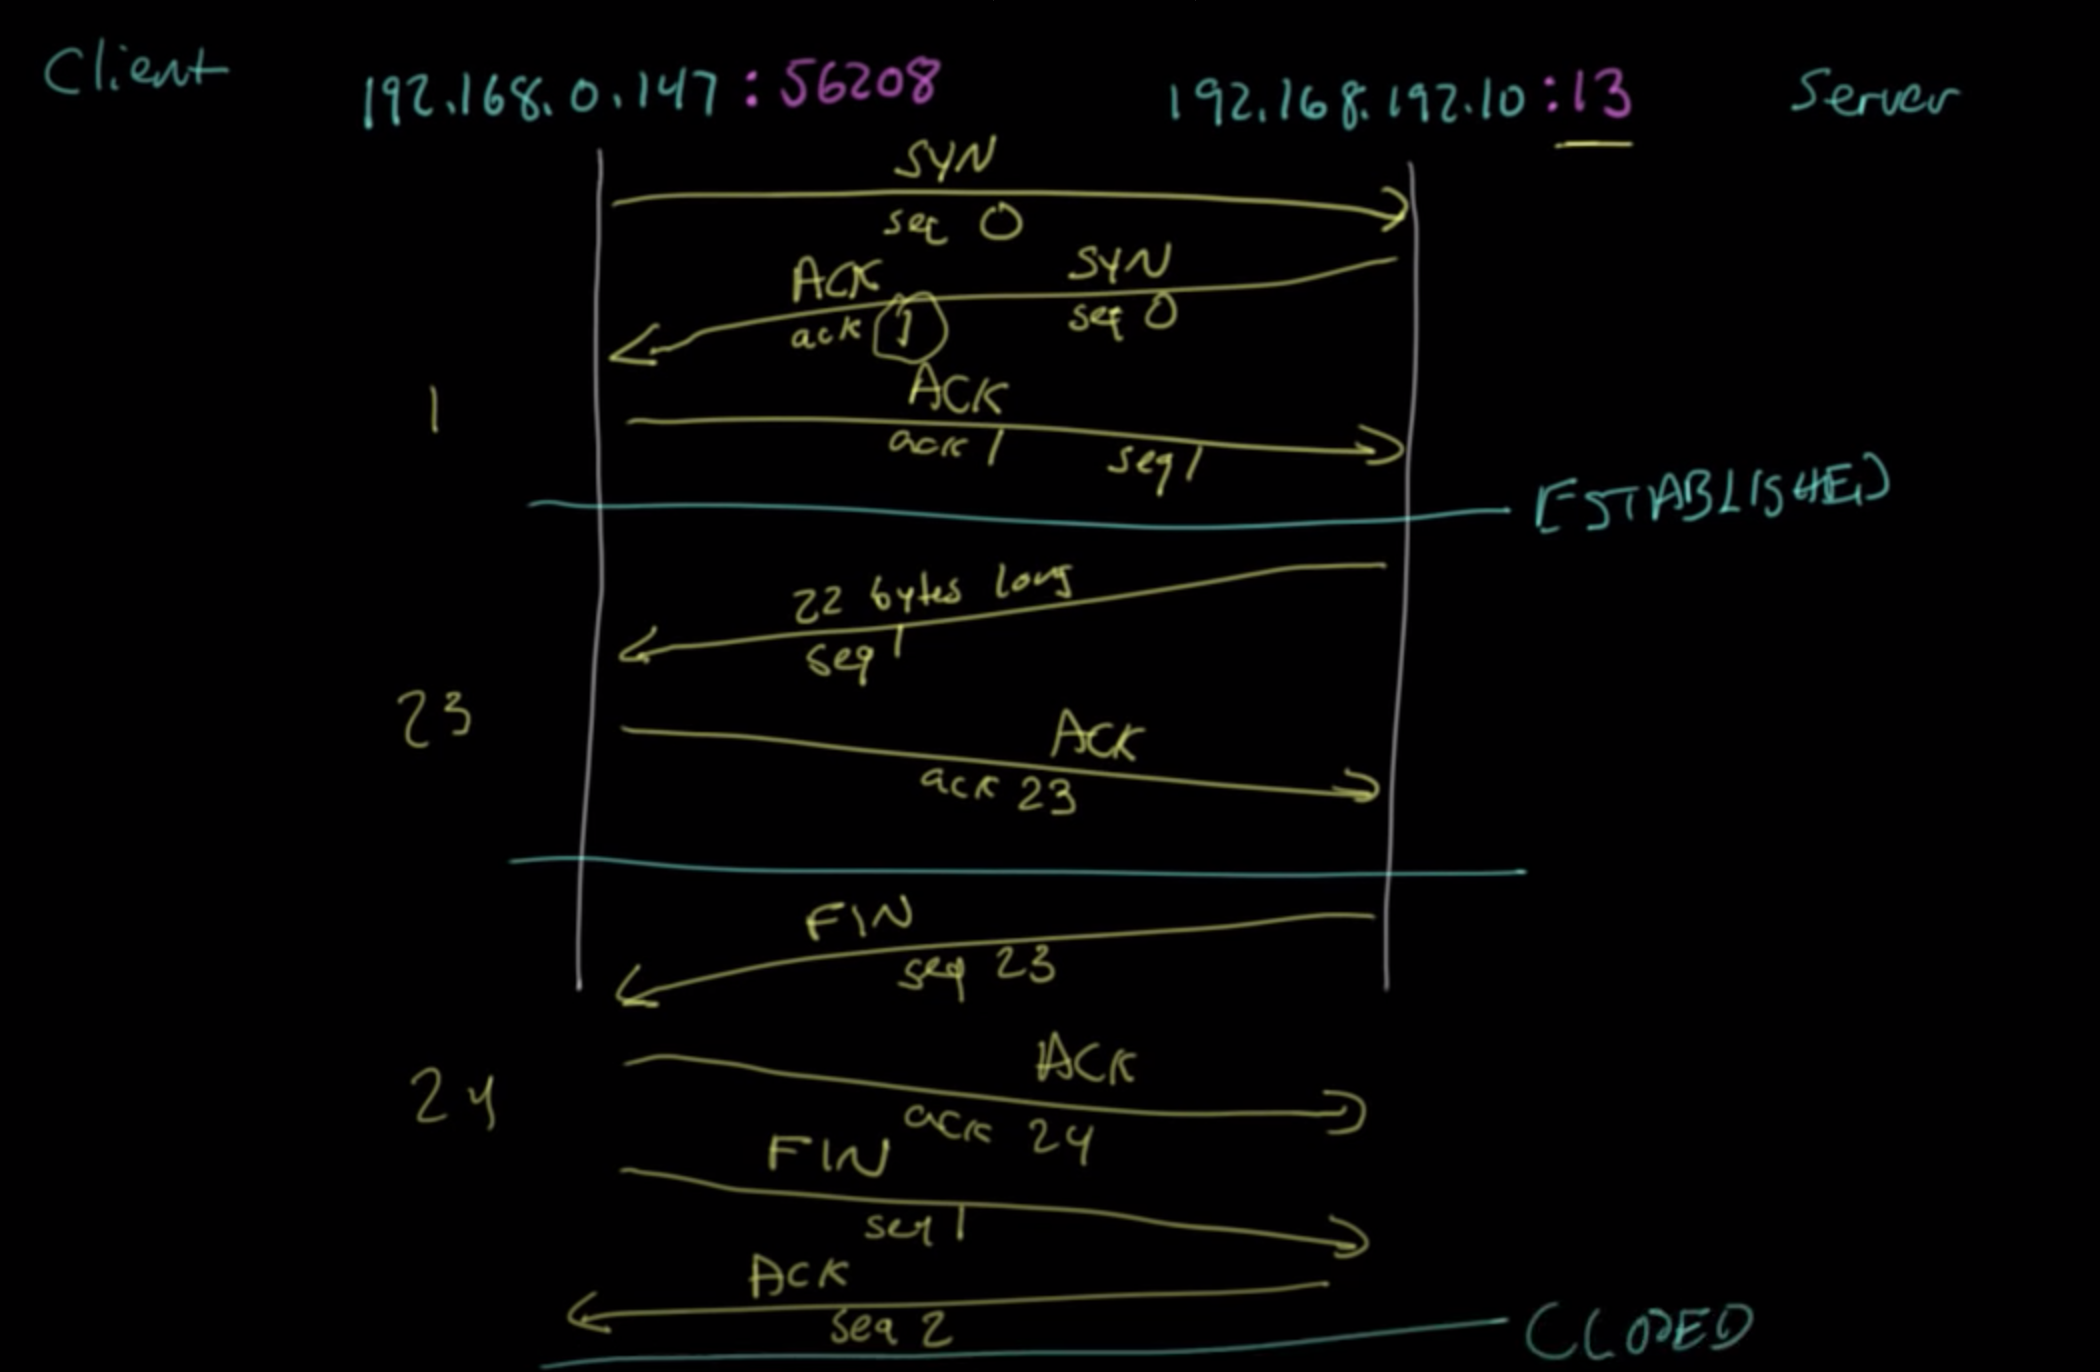 Client 192.168.0.147:56208 192.168.192.10:13 Server
SYN
seq 0
SYN
ACK
seq 0
ack 1
ACK
1
ack 1 seq 1
ESTABLISHED
22 bytes long
seq 1
23
ACK
ack 23
FIN
seq 23
ACK
24
ack 24
FIN
seq 1
ACK
seq 2
CLOSED